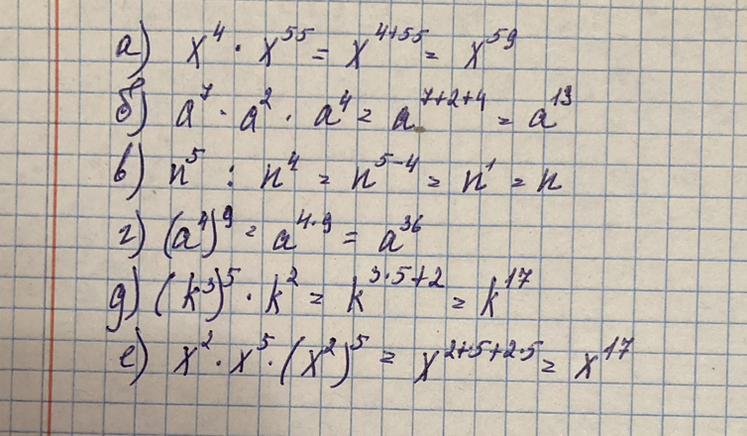 а) x⁴ · x⁵⁵ = x⁴⁺⁵⁵ = x⁵⁹
б) a⁷ · a² · a⁴ = a⁷⁺²⁺⁴ = a¹³
в) n⁵ : n⁴ = n⁵⁻⁴ = n¹ = n
г) (a⁴)⁹ = a⁴·⁹ = a³⁶
д) (k³)⁵ · k² = k³·⁵⁺² = k¹⁷
е) x² · x⁵ · (x²)⁵ = x²⁺⁵⁺²·⁵ = x¹⁷